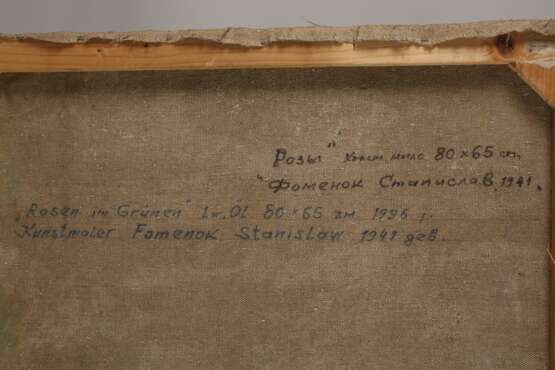 Розы" холст, масло 80×65 см,
"Фоменок Станислав, 1941.
„Rosen im Grünen" Lw. Öl 80×65 см 1996 г.
Kunstmaler Fomenok Stanislaw 1941 geb.